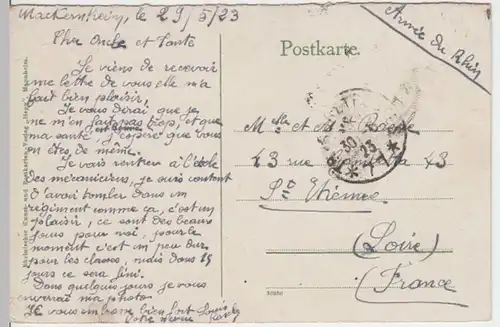 Mackenheim, le 29/5/23
Cher Oncle et Tante
Je viens de recevoir
une lettre de vous elle m'a
fait bien plaisir.
Je vous dirai que je
me m'en fait pas trop, et que
ma santé est bonne j'espère que vous
en êtes, de même.
Je vais rentrer à l'école
des mécaniciens, je suis content
d'avoir tomber dans un
régiment comme ça, c'est un
plaisir, ce sont des beaux
jours pour moi, pour le
moment c'est un peu dur
pour les classes, mais dans 15
jours ce sera fini.
Dans quelques jours je vous
enverrai ma photo.
Je vous embrasse bien fort
Votre neveu
Postkarte.
Armée du Rhin
Melle et
43 rue 43
St Etienne
(Loire)
(France)